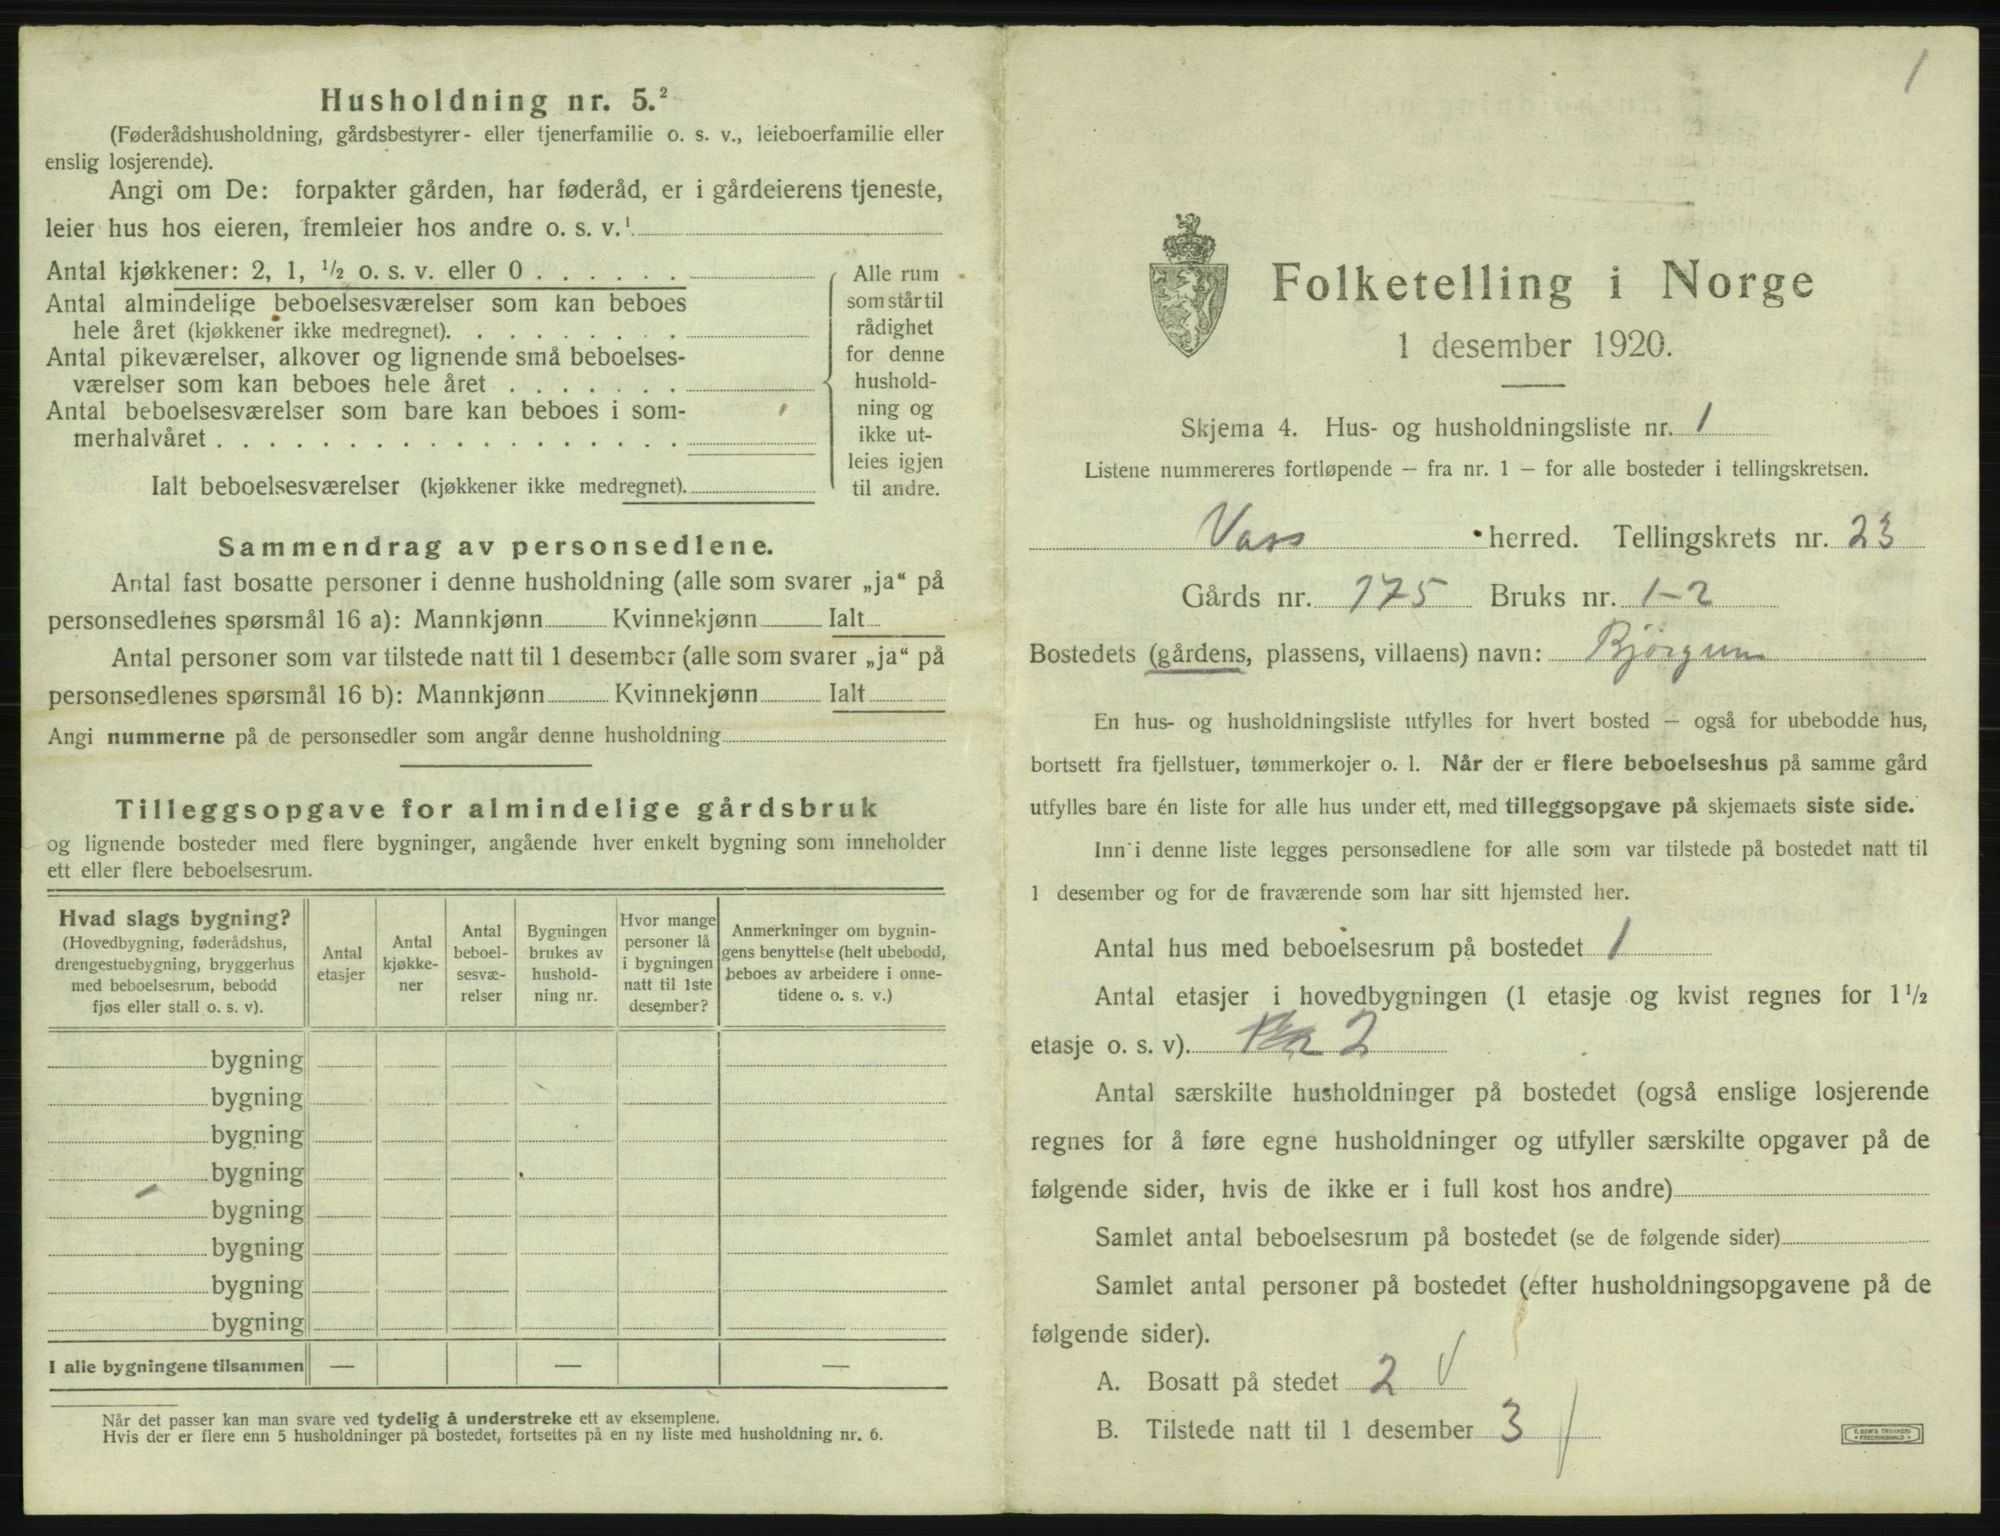 Husholdning nr. 5.²
(Føderådshusholdning, gårdsbestyrer- eller tjenerfamilie o. s. v., leieboerfamilie eller
enslig losjerende).
Angi om De: forpakter gården, har føderåd, er i gårdeierens tjeneste,
leier hus hos eieren, fremleier hos andre o. s. v.¹
Antal kjøkkener: 2, 1, ½ o. s. v. eller 0 . . . . . .
Antal almindelige beboelsesværelser som kan beboes
hele året (kjøkkener ikke medregnet). . . . . . . . .
Antal pikeværelser, alkover og lignende små beboelses-
værelser som kan beboes hele året . . . . . . .
Antal beboelsesværelser som bare kan beboes i som-
merhalvåret . . . . . . . . . . . . . . . . . .
Ialt beboelsesværelser (kjøkkener ikke medregnet).
Alle rum
som står til
rådighet
for denne
hushold-
ning og
ikke ut-
leies igjen
til andre.
Sammendrag av personsedlene.
Antal fast bosatte personer i denne husholdning (alle som svarer „ja“ på
personsedlenes spørsmål 16 a): Mannkjønn Kvinnekjønn Ialt
Antal personer som var tilstede natt til 1 desember (alle som svarer „ja“ på
personsedlenes spørsmål 16 b): Mannkjønn Kvinnekjønn Ialt
Angi nummerne på de personsedler som angår denne husholdning
Tilleggsopgave for almindelige gårdsbruk
og lignende bosteder med flere bygninger, angående hver enkelt bygning som inneholder
ett eller flere beboelsesrum.
Hvad slags bygning?
(Hovedbygning, føderådshus,
drengestuebygning, bryggerhus
med beboelsesrum, bebodd
fjøs eller stall o. s. v).
Antal
etasjer
Antal
kjøkke-
ner
Antal
beboel-
sesvæ-
relser
Bygningen
brukes av
hushold-
ning nr.
Hvor mange
personer lå
i bygningen
natt til 1ste
desember?
Anmerkninger om bygnin-
gens benyttelse (helt ubebodd,
beboes av arbeidere i onne-
tidene o. s. v.)
bygning
bygning
bygning
bygning
bygning
bygning
bygning
bygning
I alle bygningene tilsammen — — —
Når det passer kan man svare ved tydelig å understreke ett av eksemplene.
Hvis der er flere enn 5 husholdninger på bostedet, fortsettes på en ny liste med husholdning nr. 6.
1
Folketelling i Norge
1 desember 1920.
Skjema 4. Hus- og husholdningsliste nr. 1
Listene nummereres fortløpende – fra nr. 1 – for alle bosteder i tellingskretsen.
Vass herred. Tellingskrets nr. 23
Gårds nr. 175 Bruks nr. 1-2
Bostedets (gårdens, plassens, villaens) navn: Bjørgum
En hus- og husholdningsliste utfylles for hvert bosted – også for ubebodde hus,
bortsett fra fjellstuer, tømmerkojer o. l. Når der er flere beboelseshus på samme gård
utfylles bare én liste for alle hus under ett, med tilleggsopgave på skjemaets siste side.
Inn i denne liste legges personsedlene for alle som var tilstede på bostedet natt til
1 desember og for de fraværende som har sitt hjemsted her.
Antal hus med beboelsesrum på bostedet 1
Antal etasjer i hovedbygningen (1 etasje og kvist regnes for 1½
etasje o. s. v). 2
Antal særskilte husholdninger på bostedet (også enslige losjerende
regnes for å føre egne husholdninger og utfyller særskilte opgaver på de
følgende sider, hvis de ikke er i full kost hos andre)
Samlet antal beboelsesrum på bostedet (se de følgende sider)
Samlet antal personer på bostedet (efter husholdningsopgavene på de
følgende sider).
A. Bosatt på stedet 2 √
B. Tilstede natt til 1 desember 3 √